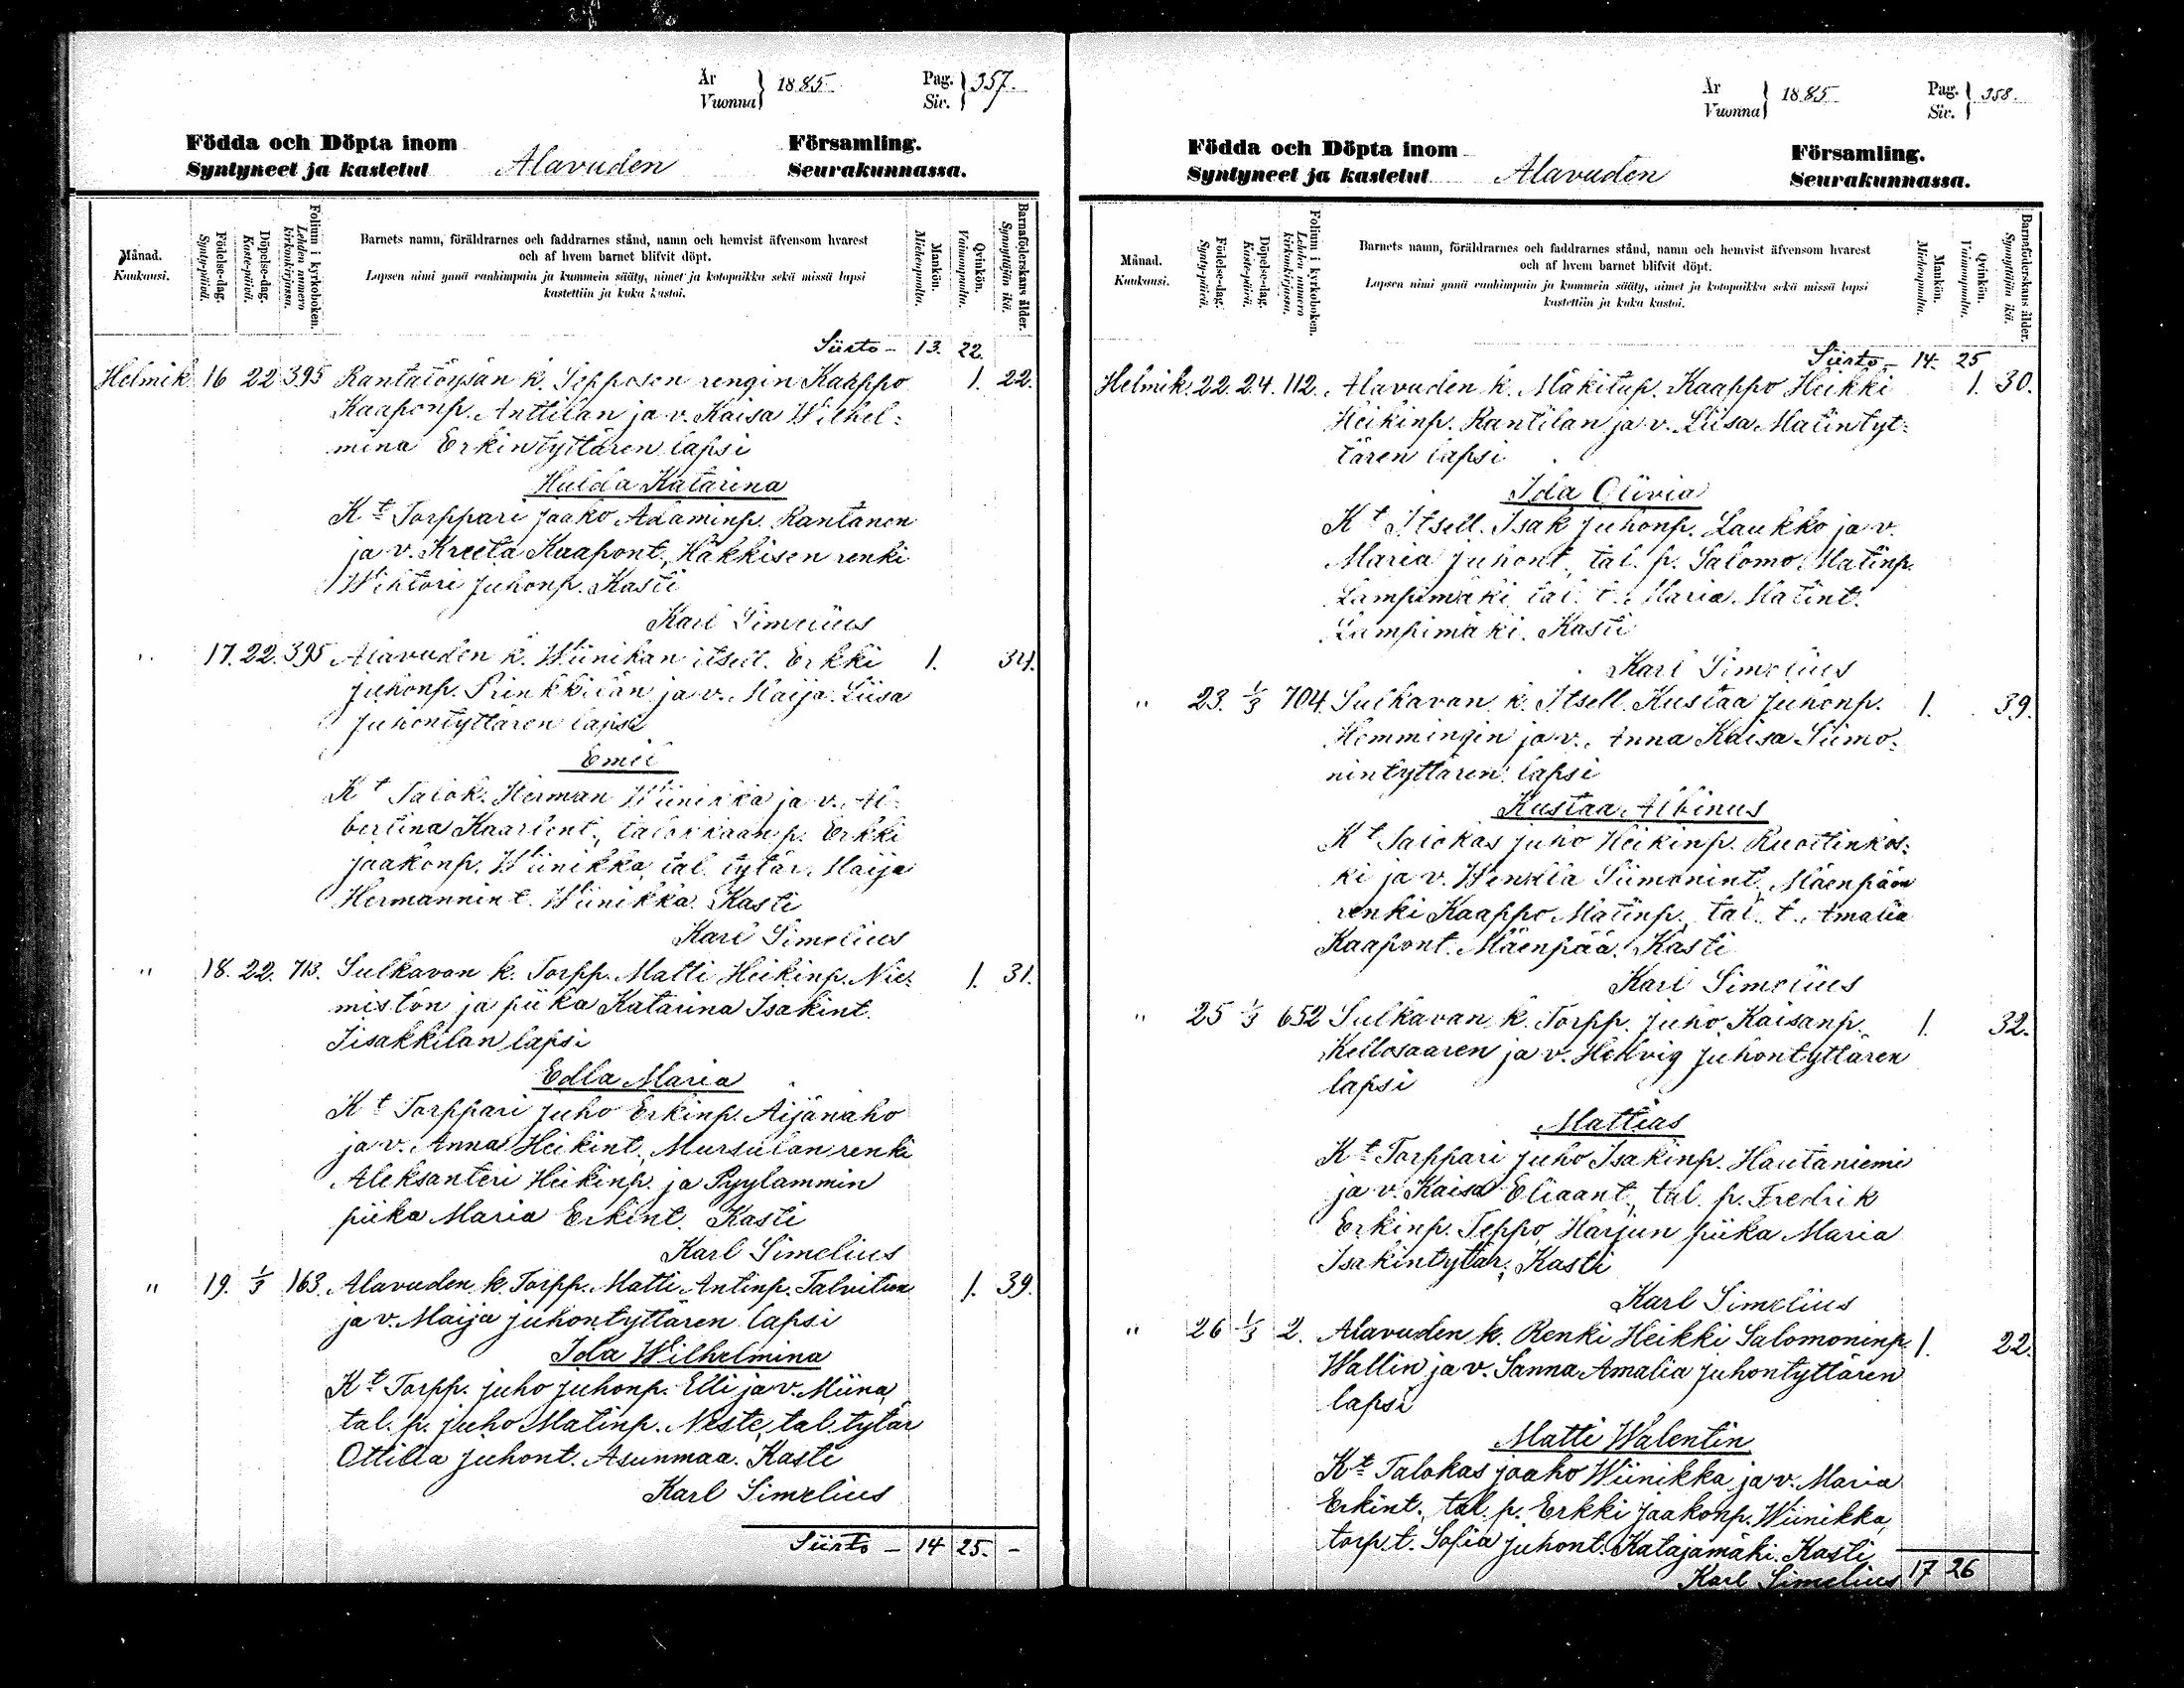 År
Vuonna } 1885
Pag.
Siv. } 357.
Födda och Döpta inom
Syntyneet ja kastetut
Alavuden
Församling.
Seurakunnassa.
Månad.
Kuukausi.
Födelse-dag.
Synty-päivä.
Döpelse-dag.
Kaste-päivä.
Folium i kyrkoboken.
Lehden numero
kirkonkirjassa.
Barnets namn, föräldrarnes och faddrarnes stånd, namn och hemvist äfvensom hvarest
och af hvem barnet blifvit döpt.
Lapsen nimi ynnä vanhimpain ja kummein sääty, nimet ja kotopaikka sekä missä lapsi
kastettiin ja kuka kastoi.
Mankön.
Miehenpuolta.
Qvinkön.
Vaimonpuolta.
Barnaföderskans ålder.
Synnyttäjän ikä.
Siirto – 13. 22.
Helmik. 16 22 395 Rantatöysän k. Sepposen rengin Kaappo 1. 22.
Kaaponp. Anttilan ja v. Kaisa Wilhel-
mina Erkintyttären lapsi
Hulda Katarina
Kt Torppari Jaako Adaminp. Rantanen
ja v. Kreeta Kaapont., Häkkisen renki
Wihtori Juhonp. Kasti
Karl Simelius
" 17. 22. 395 Alavuden k. Wiinikan itsell. Erkki 1. 34.
Juhonp. Prinkkilän ja v. Maija Liisa
Juhontyttären lapsi
Emil
Kt Talok. Herman Wiinikka ja v. Al-
bertina Kaarlent., talokkaan p. Erkki
Jaakonp. Wiinikka, tal. tytär Maija
Hermannint. Wiinikka. Kasti
Karl Simelius
" 18. 22. 713. Sulkavan k. Torpp. Matti Heikinp. Nie- 1. 31.
mistön ja piika Katarina Isakint.
Iisakkilan lapsi
Edla Maria
Kt Torppari Juho Erkinp. Äijänaho
ja v. Anna Heikint., Mursulan renki
Aleksanteri Heikinp. ja Pyylammin
piika Maria Erkint. Kasti
Karl Simelius
" 19. 1/3 163. Alavuden k. Torpp. Matti Antinp. Talvitien 1. 39.
ja v. Maija Juhontyttären lapsi
Ida Wilhelmina
Kt Torpp. Juho Juhonp. Elli ja v. Miina,
tal. p. Juho Matinp. Neste, tal. tytär
Ottilia Juhont. Asunmaa. Kasti
Karl Simelius
Siirto – 14 25. –
År
Vuonna } 1885
Pag.
Siv. } 358.
Födda och Döpta inom
Syntyneet ja kastetut
Alavuden
Församling.
Seurakunnassa.
Månad.
Kuukausi.
Födelse-dag.
Synty-päivä.
Döpelse-dag.
Kaste-päivä.
Folium i kyrkoboken.
Lehden numero
kirkonkirjassa.
Barnets namn, föräldrarnes och faddrarnes stånd, namn och hemvist äfvensom hvarest
och af hvem barnet blifvit döpt.
Lapsen nimi ynnä vanhimpain ja kummein sääty, nimet ja kotopaikka sekä missä lapsi
kastettiin ja kuka kastoi.
Mankön.
Miehenpuolta.
Qvinkön.
Vaimonpuolta.
Barnaföderskans ålder.
Synnyttäjän ikä.
Siirto – 14. 25
Helmik. 22. 24. 112. Alavuden k. Mäkitup. Kaappo Heikki 1. 30.
Heikinp. Rantilan ja v. Liisa Matintyt-
tären lapsi
Ida Olivia
Kt Itsell. Isak Juhonp. Laukko ja v.
Maria Juhont., tal. p. Salomo Matinp.
Lampimäki, tal. t. Maria Matint.
Lampimäki. Kasti
Karl Simelius
" 23. 1/3 704. Sulkavan k. Itsell. Kustaa Juhonp. 1. 39.
Hemmingin ja v. Anna Kaisa Siimo-
nintyttären lapsi
Kustaa Albinus
Kt Talokas Juho Heikinp. Ruottinkos-
ki ja v. Wendla Siimonint., Mäenpään
renki Kaappo Matinp., tal. t. Amalia
Kaapont. Mäenpää. Kasti
Karl Simelius
" 25 1/3 652 Sulkavan k. Torpp. Juho Kaisanp. 1. 32.
Kellosaaren ja v. Hedvig Juhontyttären
lapsi
Mattias
Kt Torppari Juho Isakinp. Hautaniemi
ja v. Kaisa Eliaant., tal. p. Fredrik
Erkinp. Seppo, Harjun piika Maria
Isakintytär. Kasti
Karl Simelius
" 26 1/3 2. Alavuden k. Renki Heikki Salomoninp. 1. 22.
Wallin ja v. Sanna Amalia Juhontyttären
lapsi
Matti Walentin
Kt Talokas Jaako Wiinikka ja v. Maria
Erkint., tal. p. Erkki Jaakonp. Wiinikka,
torp. t. Sofia Juhont. Katajamäki. Kasti
Karl Simelius 17 26